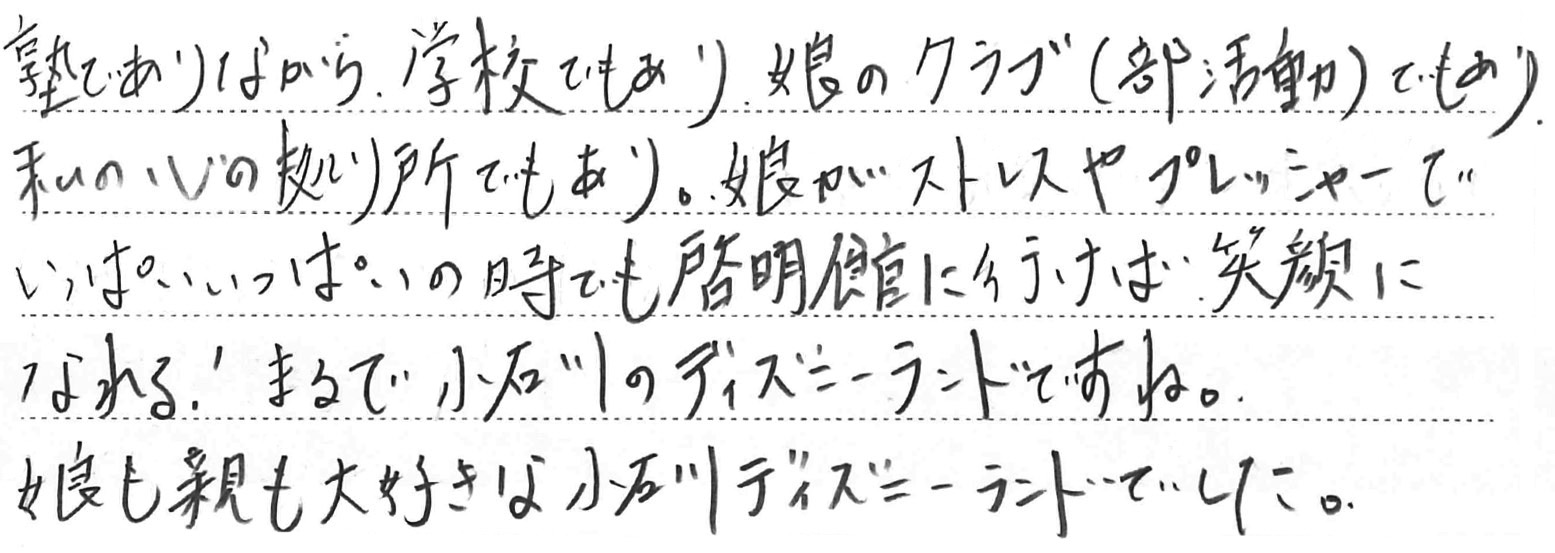 塾でありながら、学校でもあり、娘のクラブ(部活動)でもあり、
私の心の拠り所でもあり。娘がストレスやプレッシャーで
いっぱいいっぱいの時でも啓明館に行けば笑顔に
なれる!まるで小石川のディズニーランドですね。
娘も親も大好きな小石川ディズニーランドでした。